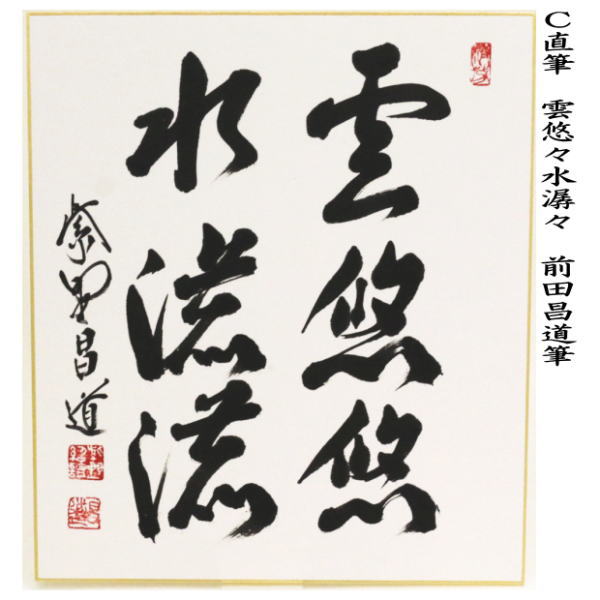 C直筆　雲悠々水潺々　前田昌道筆
雲悠悠
水潺潺
紫野昌道